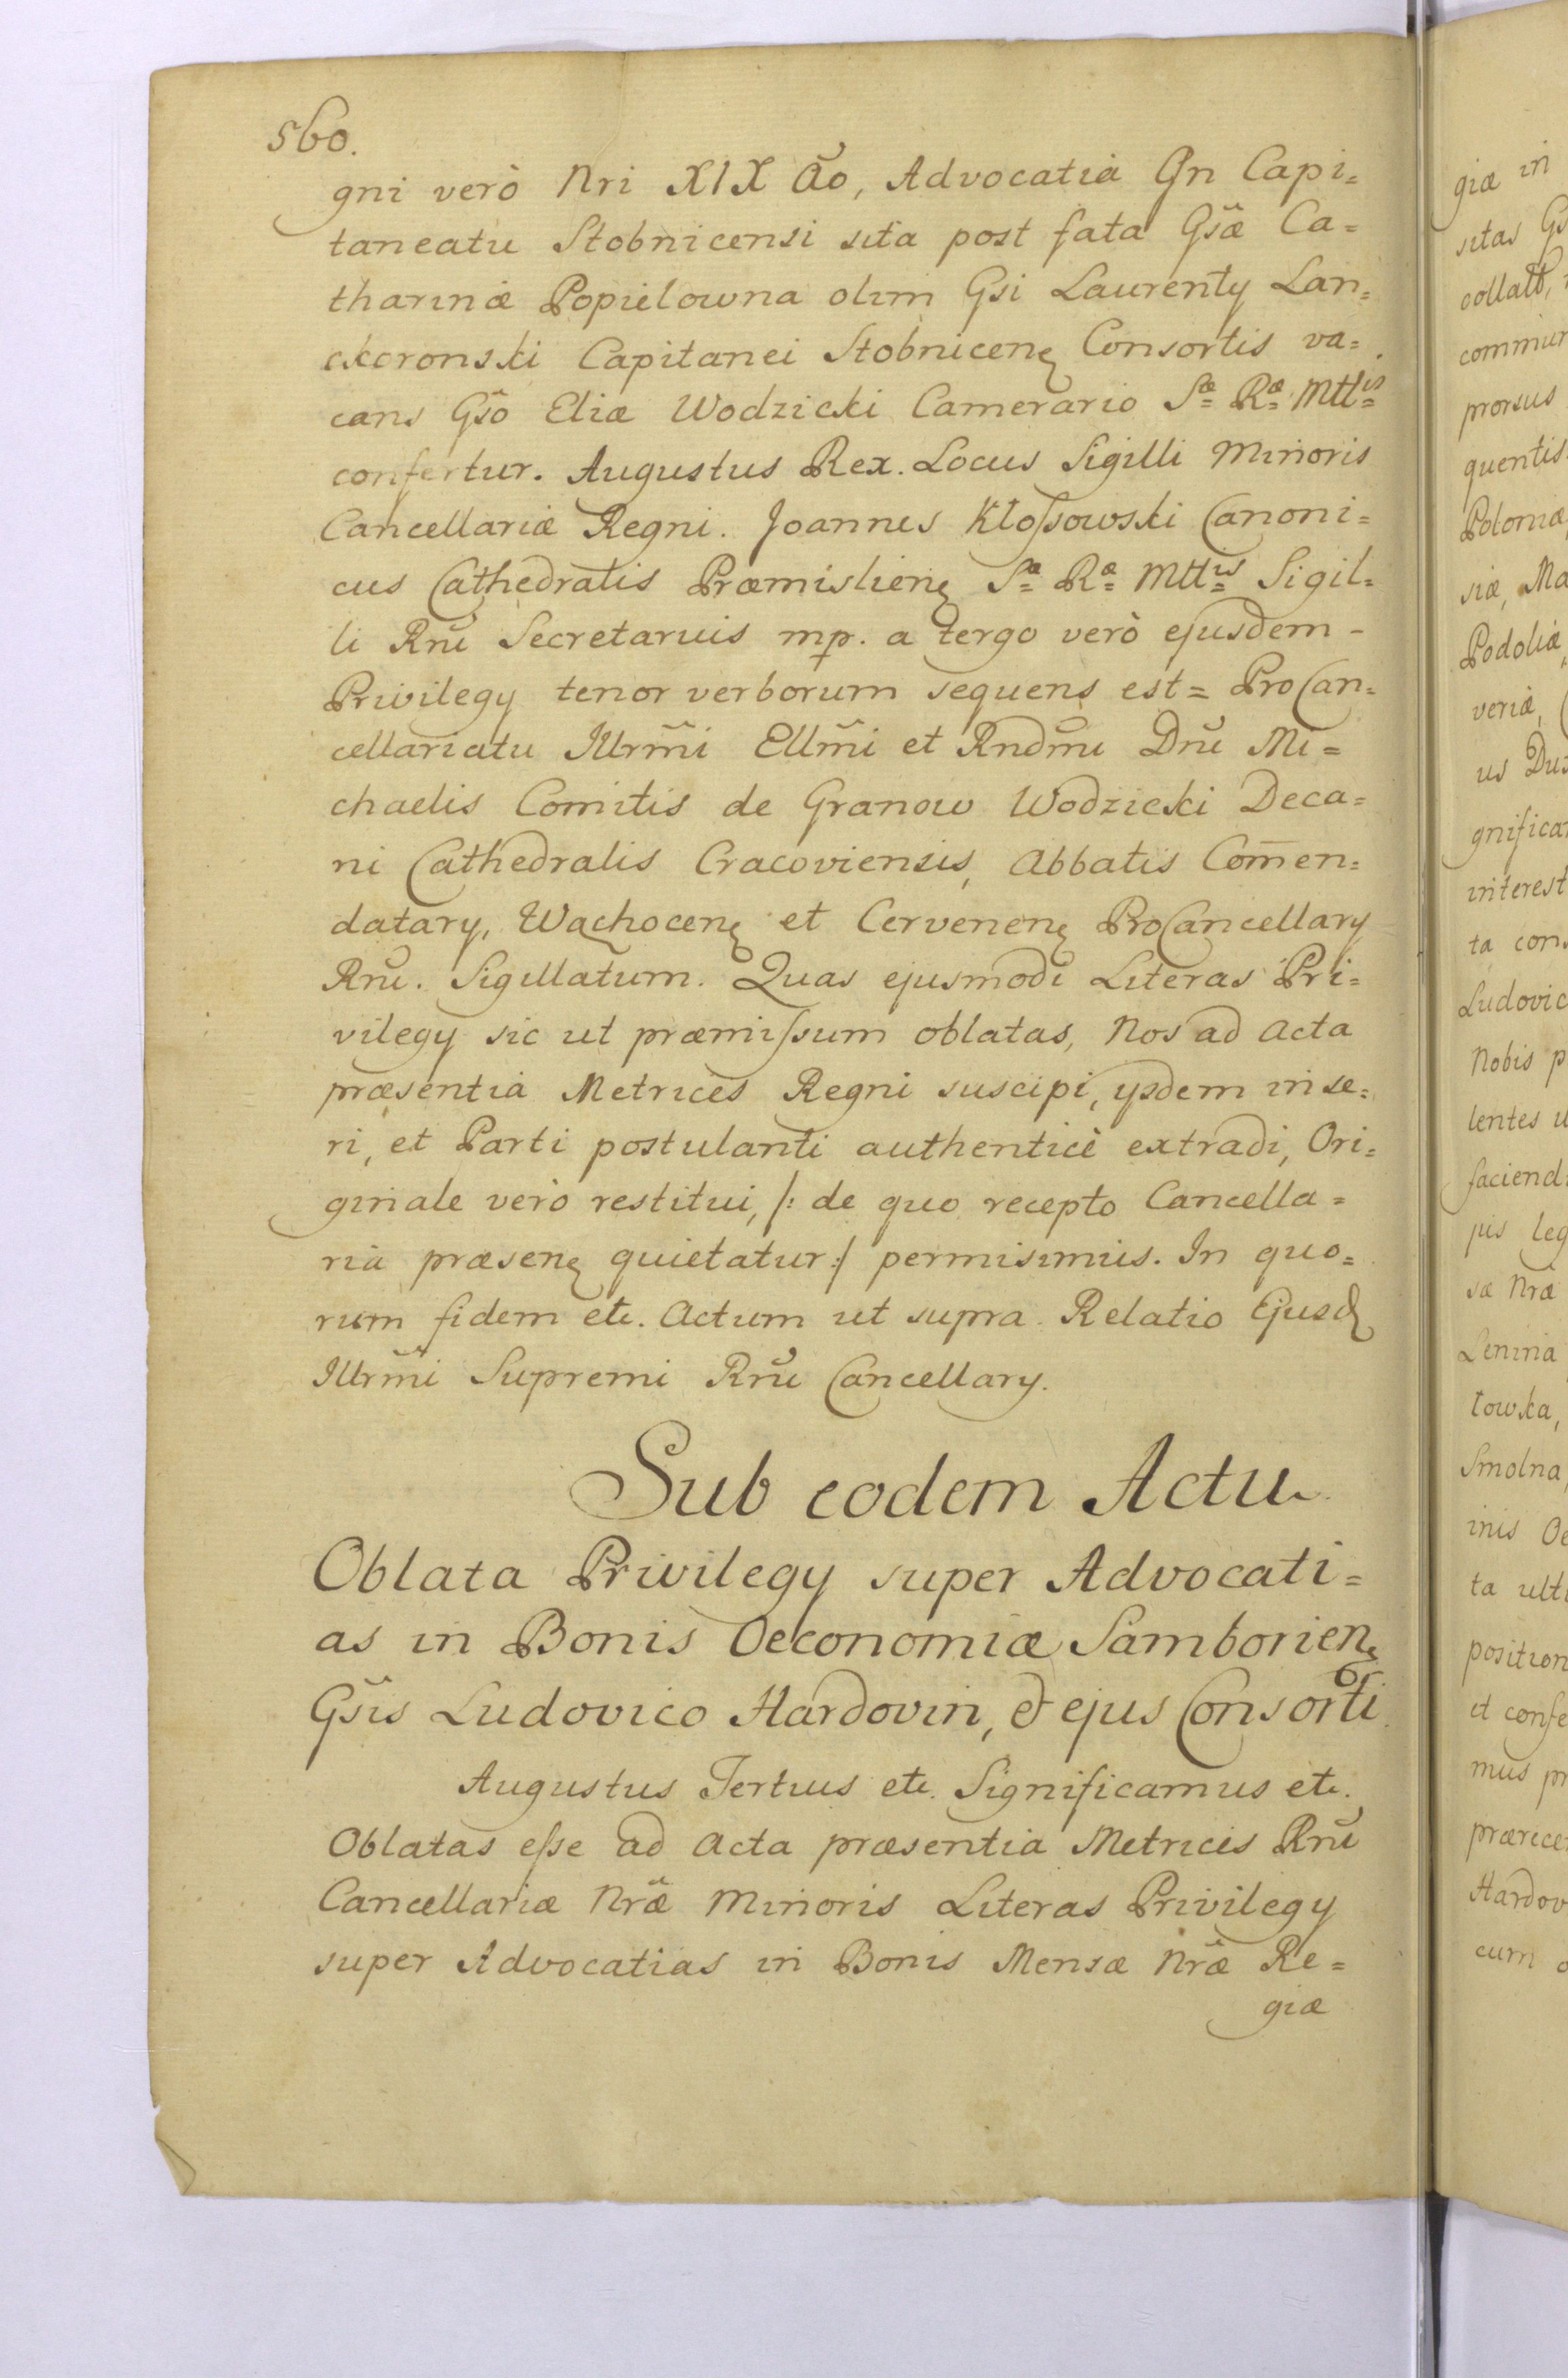 560.
gni verò Nri XIX Ão, Advocatia Gn Capi=
taneatu Stobnicensi sita post fata Gsæ Ca=
tharinæ Popielowna olim Gsi Laurenty Lan=
ckoronski Capitanei Stobnicenȩ Consortis va=
cans Gsõ Eliæ Wodzicki Camerario Sæ Ræ Mttis
confertur. Augustus Rex. Locus Sigilli Minoris
Cancellariæ Regni. Joannes Kłoſsowski Canoni=
cus Cathedralis Præmislienȩ Sæ Ræ Mttis Sigil=
li Rnũ Secretarius mp. a tergo verò ejusdem -
Privilegy tenor verborum sequens est = ProCan=
cellariatu Illrm̃i Ellm̃i et Rndm̃i Dnĩ Mi=
chaelis Comitis de Granow Wodzicki Deca=
ni Cathedralis Cracoviensis, Abbatis Com̃en=
datary, Wąchocenȩ et Cervenenȩ ProCancellary
Rnĩ. Sigillatum. Quas ejusmodi Literas Pri=
vilegy sic ut præmiſsum oblatas, Nos ad Acta
præsentia Metrices Regni suscipi, ysdem inse=
ri, et Parti postulanti authenticè extradi, Ori=
ginale verò restitui, /: de quo recepto Cancella=
ria præsenȩ quietatur :/ permisimus. In quo=
rum fidem etc. Actum ut supra. Relatio Ejusd
Illrm̃i Supremi Rnĩ Cancellary.
Sub eodem Actu
Oblata Privilegy super Advocati=
as in Bonis Oeconomiæ Samborienȩ
Gsĩs Ludovico Hardovin, & ejus Consorti
Augustus Tertius etc. Significamus etc.
Oblatas eſse ad Acta præsentia Metrices Rnĩ
Cancellariæ Nræ̃ Minoris Literas Privilegy
super Advocatias in Bonis Mensæ Nræ̃ Re=
giæ
giæ in
sitas Gs
collatt,
commun
prorsus
quentis
Poloniæ
siæ, Ma
Podoliæ
veriæ,
us Dux
gnifica
interest
ta con
Ludovic
Nobis p
lentes
faciend
jus leg
sæ Nræ
Lenina
towka,
Smolna
inis Oe
ta ulti
position
et confe
mus pr
prærece
Hardov
cum